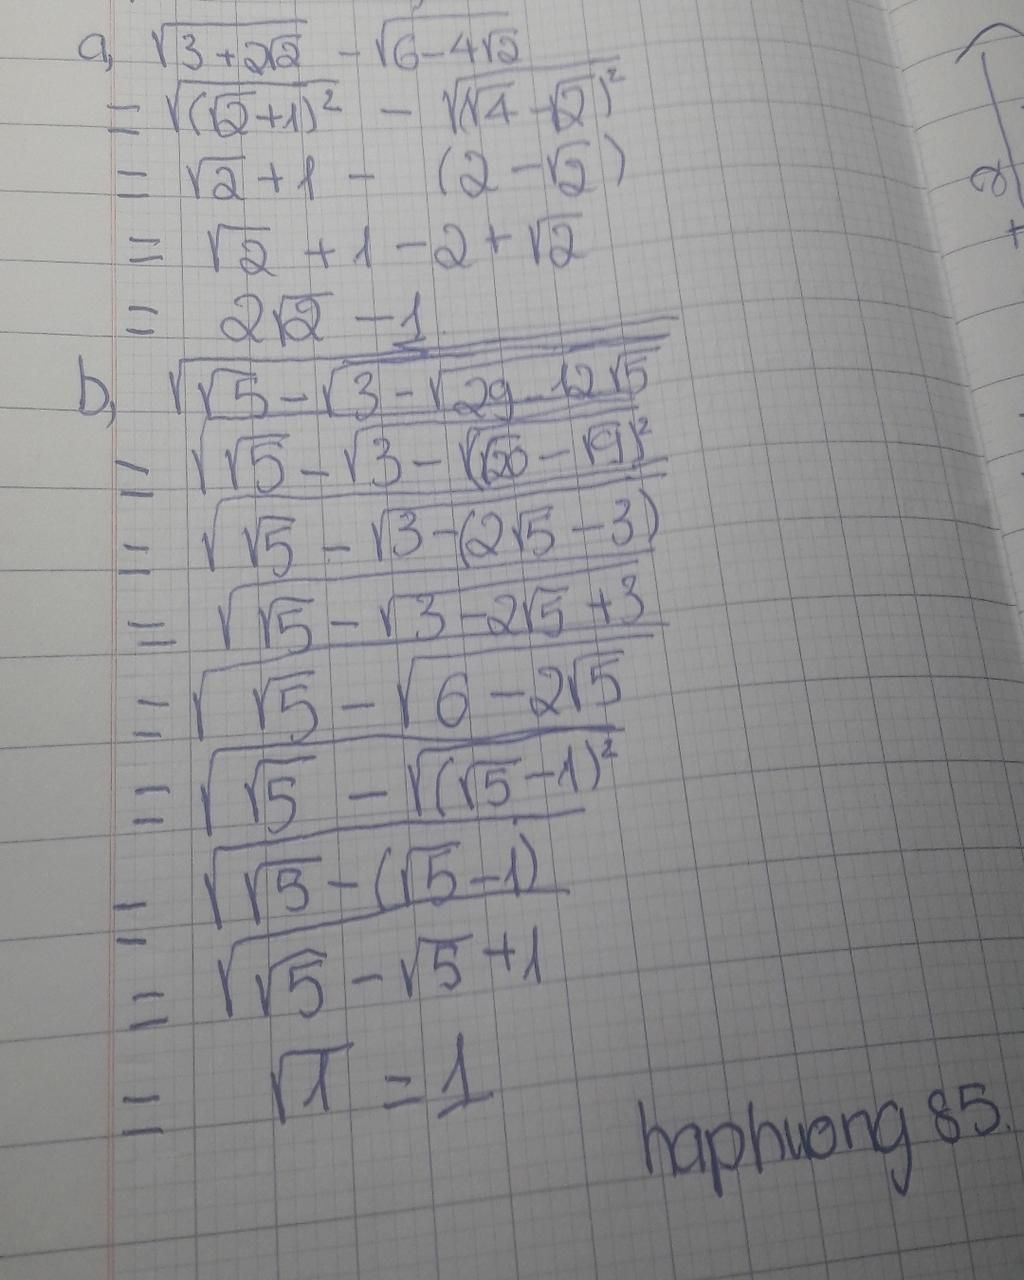 a, √(3+2√2) - √(6-4√2)
= √((√2+1)²) - √((√4-√2)²)
= √2+1 - (2-√2)
= √2 + 1 - 2 + √2
= 2√2 - 1
b, √(√5-√(3-√(29-12√5)))
= √(√5-√(3-√((√20-√9)²)))
= √(√5-√(3-(2√5-3)))
= √(√5-√(3-2√5+3))
= √(√5-√(6-2√5))
= √(√5-√((√5-1)²))
= √(√5-(√5-1))
= √(√5-√5+1)
= √1 = 1
haphuong 85.